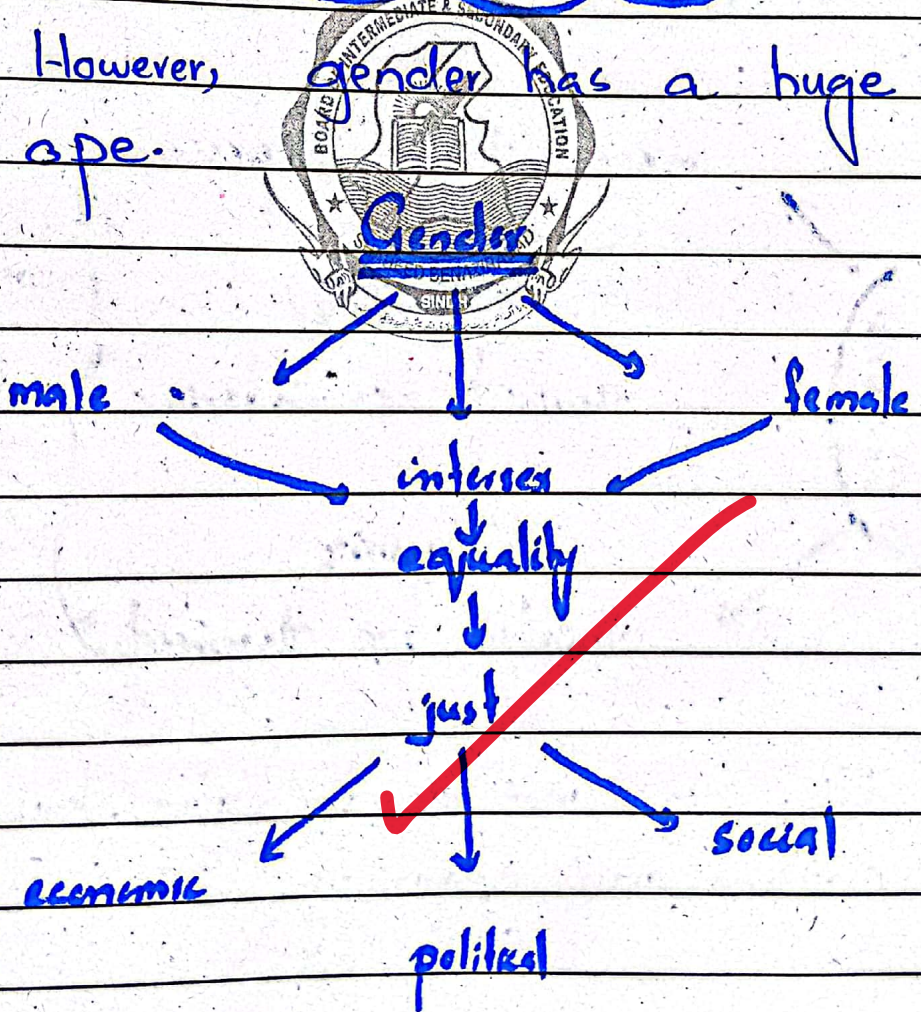 However, gender has a huge
ope.
BOARD INTERMEDIATE & SECONDARY EDUCATION
Gender
SINDH
male female
intersex
equality
just
economic social
political